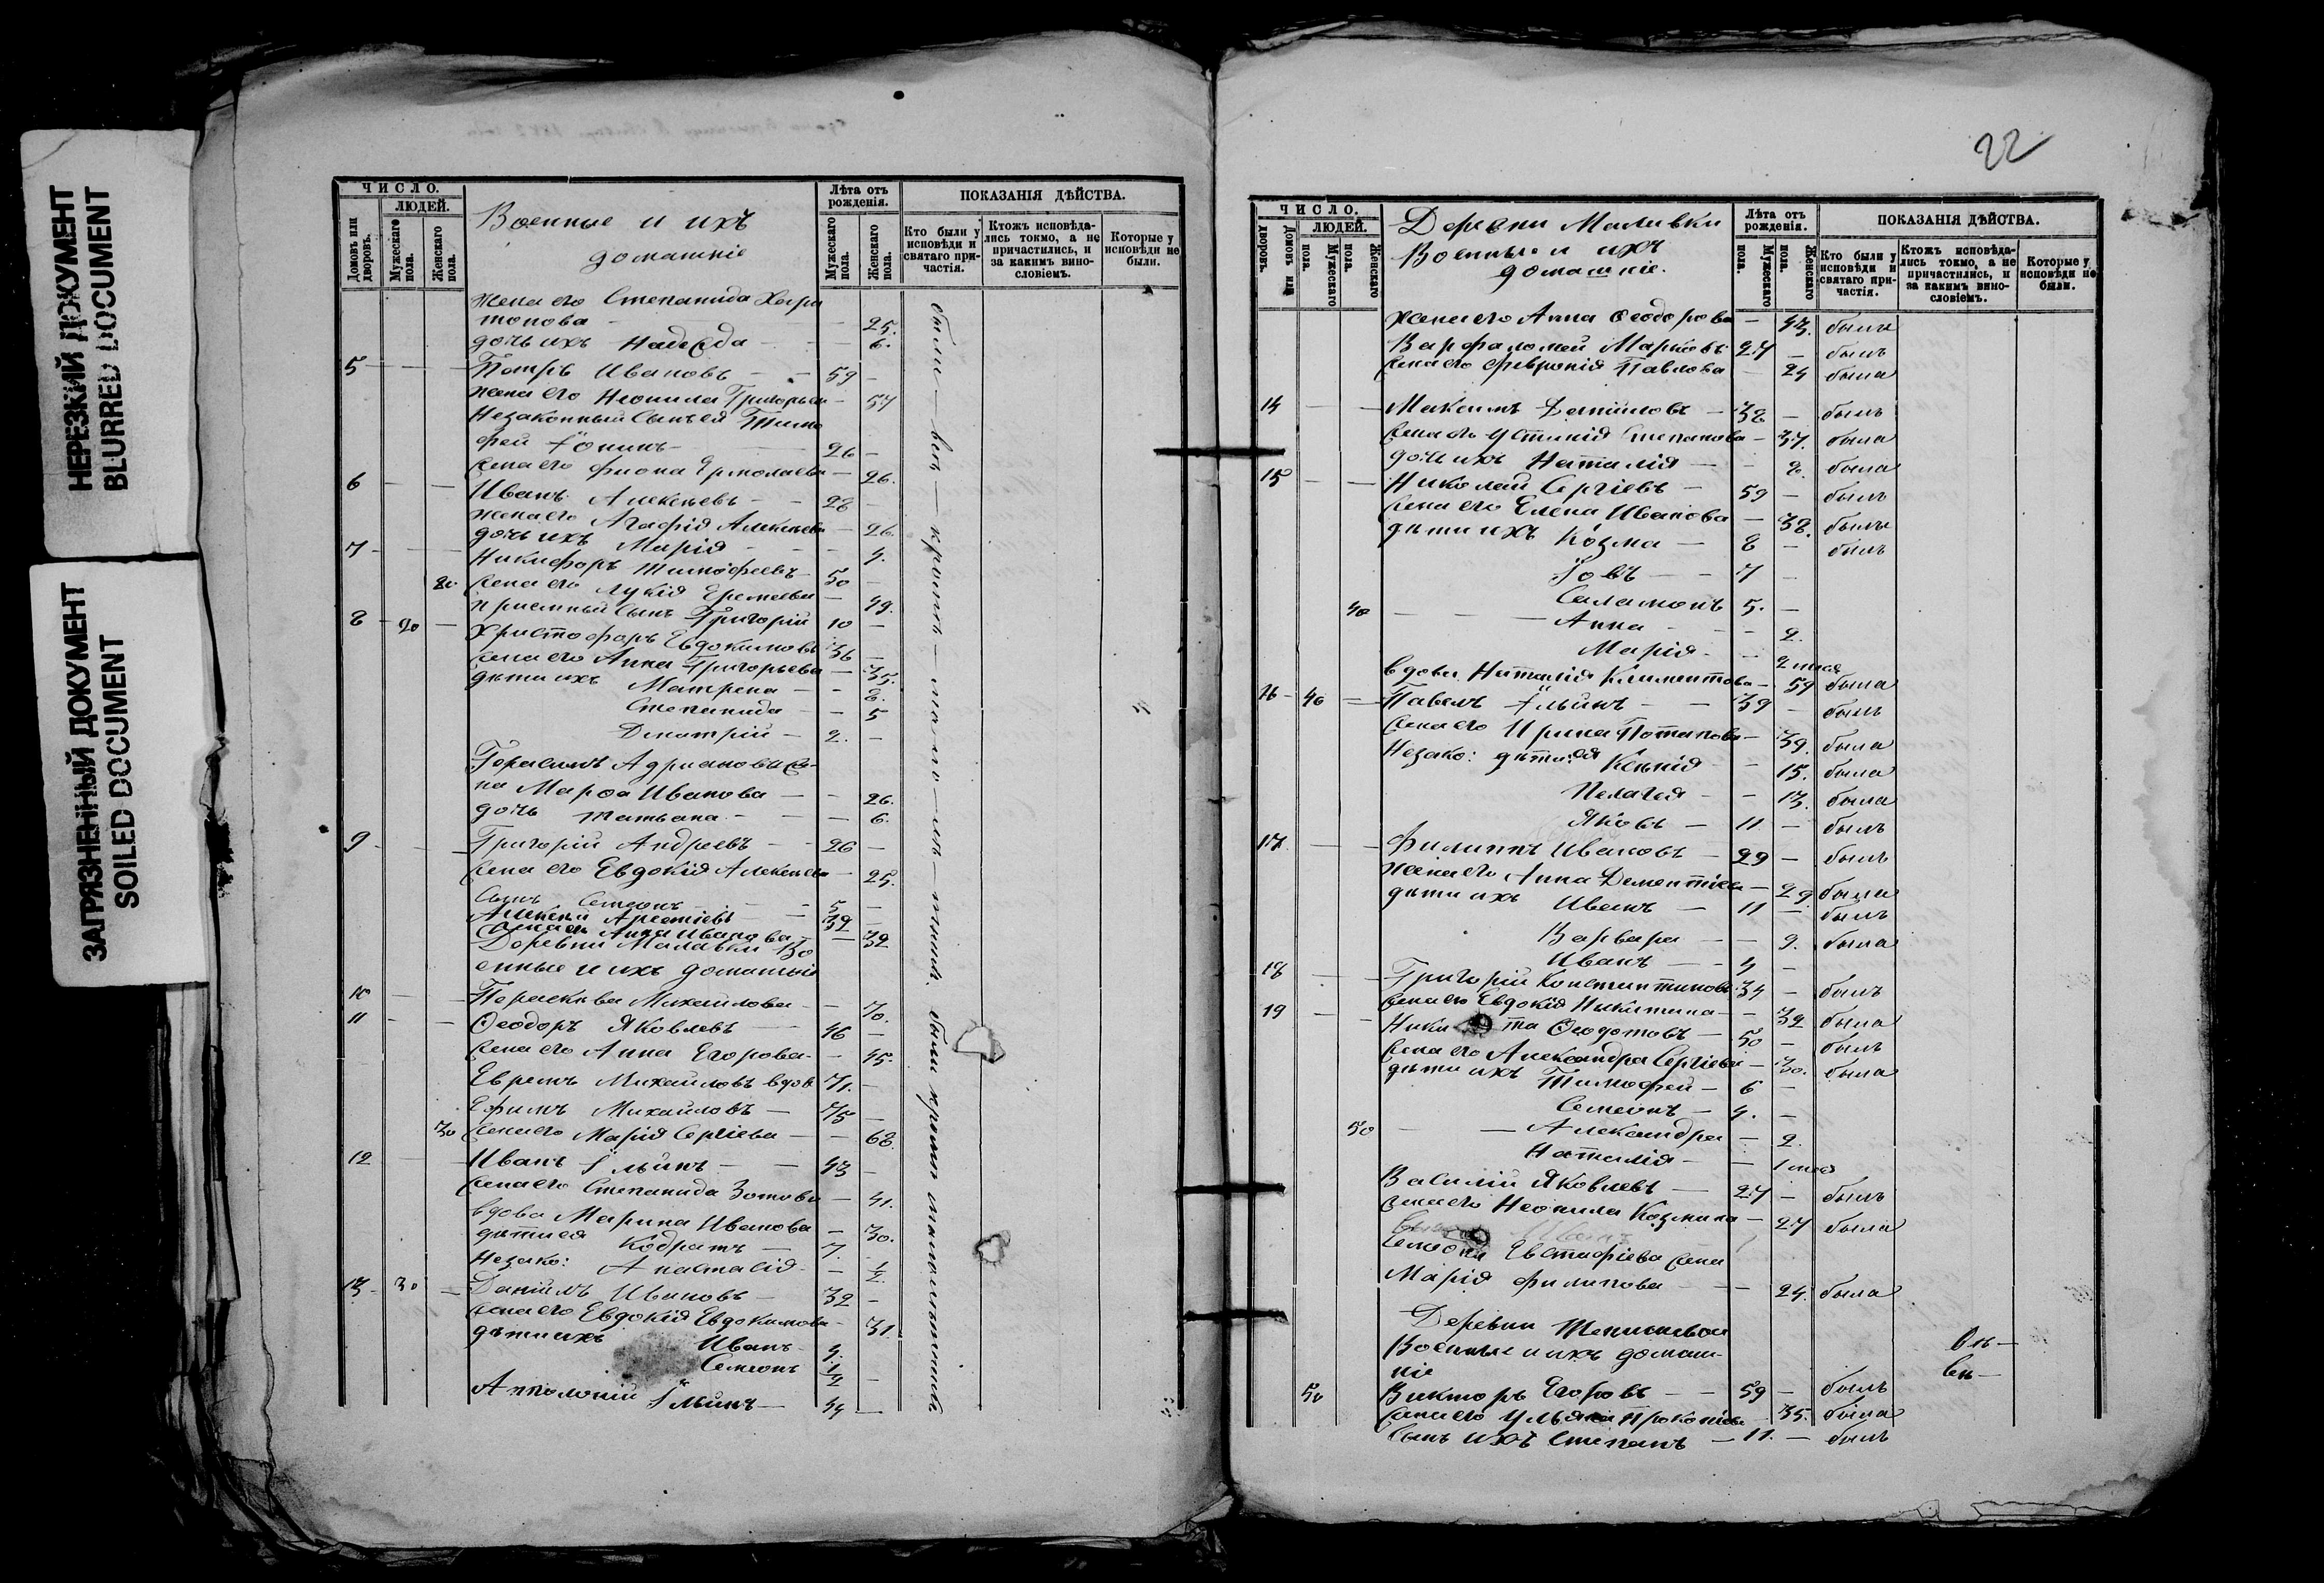 НЕРЕЗКИЙ ДОКУМЕНТ
BLURRED DOCUMENT
ЗАГРЯЗНЕННЫЙ ДОКУМЕНТ
SOILED DOCUMENT
ЧИСЛО.
ЛЮДЕЙ.
Домовъ или дворовъ.
Мужескаго пола.
Женскаго пола.
Военные и ихъ
домашніе
Лѣта отъ рожденія.
Мужескаго пола.
Женскаго пола.
ПОКАЗАНІЯ ДѢЙСТВА.
Кто были у исповѣди и святаго причастія.
Ктожъ исповѣдались токмо, а не причастились, и за какимъ винословіемъ.
Которые у исповѣди не были.
жена его Степанида Хари
тонова — 25.
дочь ихъ Надежда — 6.
5 — Петръ Ивановъ — 59 —
жена его Неонила Григорьева — 57
Незаконный сынъ ей Тимо
фей Іонинъ — 26 —
жена его Фиона Ермолаева — 26.
6 — Иванъ Алексѣевъ — 28 —
жена его Агафія Алексѣева — 26.
дочь ихъ Марія — 4.
7 — Никифоръ Тимофеевъ — 50 —
20 жена его Лукія Еремѣева — 49.
пріемный сынъ Григорій 10 —
8 — 20 — Христофоръ Евдокимовъ 36 —
жена его Анна Григорьева — 35.
дѣти ихъ Матрена — 8.
Степанида — 5
Димитрій — 2. —
Герасима Адріанова же-
на Марѳа Иванова — 26.
дочь Татьяна — 6.
9 — Григорій Андреевъ — 26 —
жена его Евдокія Алексѣева — 25.
сынъ Семеонъ — 5 —
Алексѣй — 32 —
жена его Анна Иванова — 32
Деревни Маливки Во
енные и ихъ домашніе
10 — Параскева Михаилова — 70.
11 — Ѳеодоръ Яковлевъ — 46 —
жена его Анна Егорова — 45.
Ефремъ Михаиловъ вдов. 71. —
Ефимъ Михаиловъ — 75 —
30 жена его Марія Сергіева — 68.
12 — Иванъ Ильинъ — 43 —
жена его Степанида Зотова — 41.
вдова Марина Иванова — 30.
дѣти ея Кодратъ — 7. —
Незако: Анастасія — 1/2
13 — 30 — Даніилъ Ивановъ — 32 —
жена его Евдокія Евдокимова — 31.
дѣти ихъ Иванъ — 4.
Семеонъ 1/2 —
Апполоній Ильинъ — 44 —
были — всѣ — кромѣ — мало — лѣ — тнихъ. были кромѣ малолѣтнихъ
22
ЧИСЛО.
ЛЮДЕЙ.
Домовъ или дворовъ.
Мужескаго пола.
Женскаго пола.
Деревни Маливки
Военные и ихъ
домашніе.
Лѣта отъ рожденія.
Мужескаго пола.
Женскаго пола.
ПОКАЗАНІЯ ДѢЙСТВА.
Кто были у исповѣди и святаго причастія.
Ктожъ исповѣдались токмо, а не причастились, и за какимъ винословіемъ.
Которые у исповѣди не были.
жена его Анна Ѳеодорова — 43. была
Варфаломей Марковъ 27 — былъ
жена его Февронія Павлова — 24 была
14 — Максимъ Даниловъ — 38 — былъ
жена его Устинія Степанова — 37. была
дочь ихъ Наталія — 8. была
15 — Николай Сергіевъ — 59 — былъ
жена его Елена Иванова — 38. была
дѣти ихъ Козма — 8 — былъ
Іовъ — 7 —
Саламонъ 5. —
40 — Анна — 2.
Марія —
вдова Наталія Климентова — 59 была
16 — 40 — Павелъ Ильинъ — 39 — былъ
жена его Ирина Потапова — 39. была
Незако: дѣти ея Ксенія — 15. была
Пелагея — 13. была
Яковъ — 11 — былъ
17 — Филиппъ Ивановъ — 29 — былъ
жена его Анна Дементіева — 29. была
дѣти ихъ Иванъ — 11 — былъ
Варвара — 9. была
Иванъ — 4 —
18 — Григорій Константиновъ 34 — былъ
жена его Евдокія Никитина — 32 была
19 — Никита Ѳеодотовъ — 50 — былъ
жена его Александра Сергіева — 30. была
дѣти ихъ Тимофей — 6 —
Семеонъ — 4. —
50 — Александра — 2.
Наталія —
Василій Яковлевъ — 27 — былъ
жена его Неонила Козмина — 27 была
Семеона Евстафіева жена
Марія Филипова — 24. была
Деревни
Военные и ихъ домаш-
ніе
50 Викторъ Егоровъ — 59 — былъ
жена его Ульяна Прокопіева 35. была
сынъ ихъ Степанъ — 11. — былъ